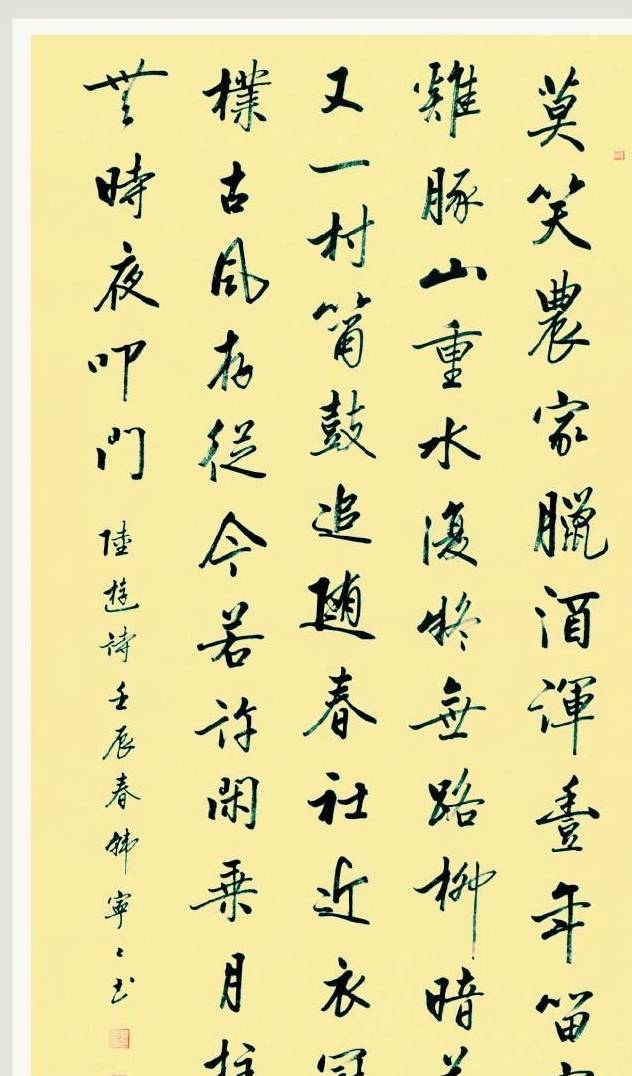 莫笑農家臘酒渾豐年留
雞豚山重水復疑無路柳暗花
又一村簫鼓追隨春社近衣冠
樸古風存從今若許閑乘月拄
無時夜叩門
陸遊詩壬辰春韓寧〻书